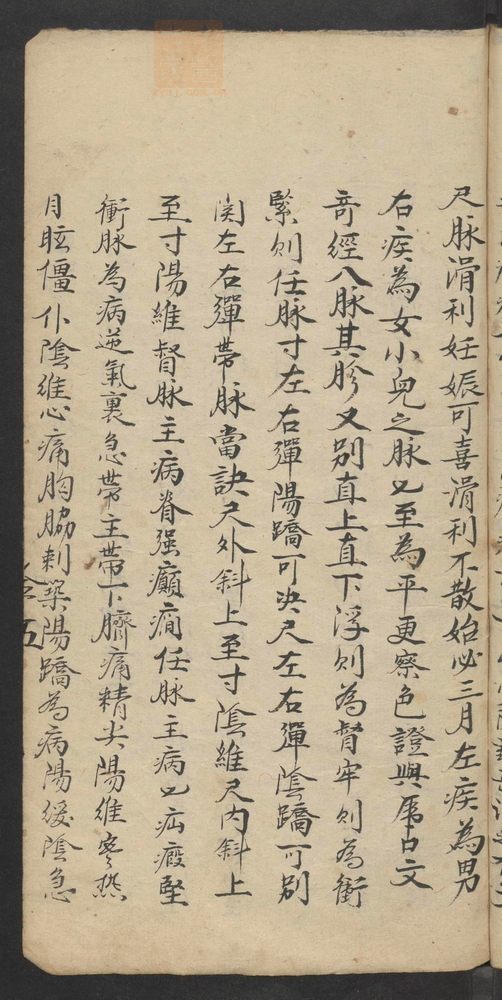 尺脉滑利妊娠可喜滑利不散始必三月左疾為男
右疾為女小兒之脉七至為平更察色證與虎口文
奇經八脉其胗又别直上直下浮則為督牢則為衝
緊則任脉寸左右彈陽蹻可决尺左右彈陰蹻可别
関左右彈帶脉當訣尺外斜上至寸陰維尺内斜上
至寸陽維督脉主病脊强癲癇任脉主病七疝瘕堅
衝脉為病逆氣裏急帶主帶下臍痛精失陽維寒热
目眩僵仆陰維心痛胸脇刺築陽蹻為病陽緩陰急
五